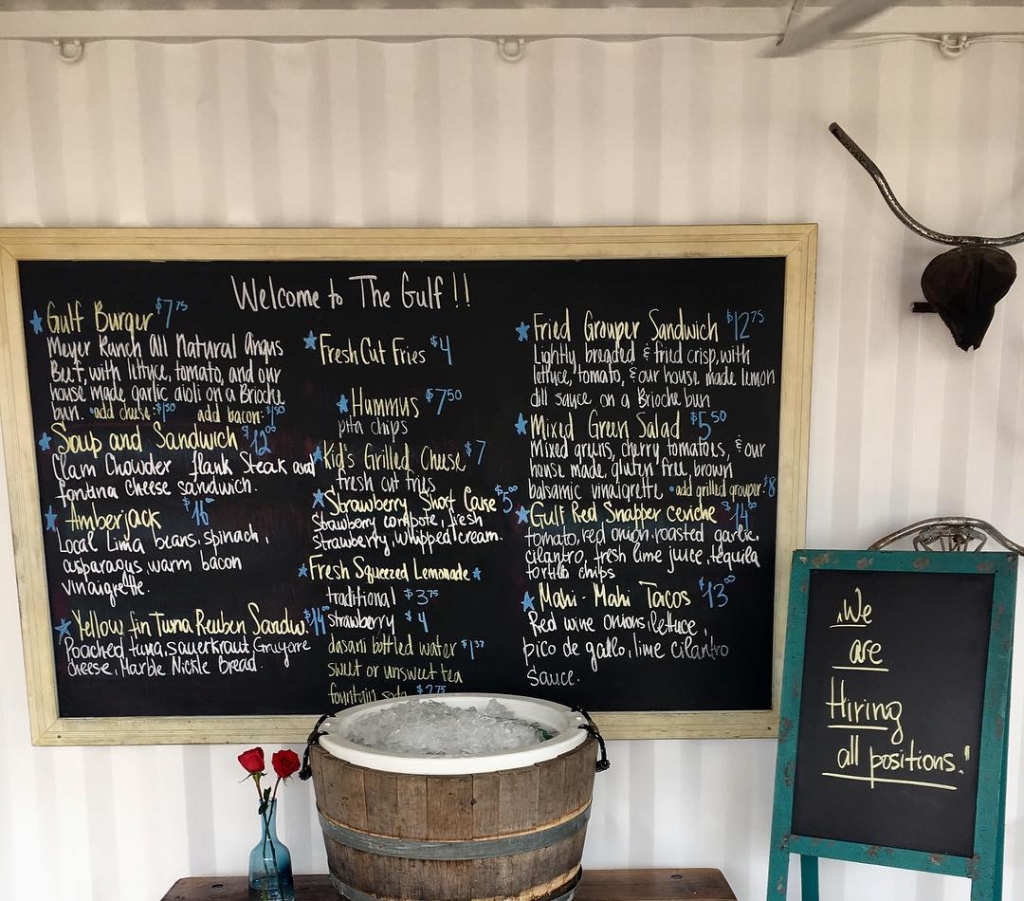 Welcome to The Gulf !!
Gulf Burger $7.75
Meyer Ranch All Natural Angus
Beef, with lettuce, tomato, and our
house made garlic aioli on a Brioche
bun. • add cheese: $1.50 add bacon: $1.50
Soup and Sandwich $12.00
Clam Chowder flank steak and
fontina cheese sandwich.
Amberjack $16
Local Lima beans, spinach,
asparagus, warm bacon
vinaigrette.
Yellow fin Tuna Reuben Sandw. $14
Poached tuna, sauerkraut Gruyere
cheese, Marble Nickle Bread.
Fresh Cut Fries $4
Hummus $7.50
pita chips
Kid's Grilled Cheese $7
fresh cut fries
Strawberry Short Cake $5
strawberry compote, fresh
strawberry, whipped cream.
Fresh Squeezed Lemonade
traditional $3.75
strawberry $4
dasani bottled water
sweet or unsweet tea
fountain soda $2.75
Fried Grouper Sandwich $12.75
Lightly breaded & fried crisp, with
lettuce, tomato, & our house made lemon
dill sauce on a Brioche bun
Mixed Green Salad $5.50
Mixed greens, cherry tomatoes, & our
house made, gluten free, brown
balsamic vinaigrette • add grilled grouper: $8
Gulf Red Snapper ceviche $14
tomato, red onion, roasted garlic,
cilantro, fresh lime juice, tequila
tortilla chips
Mahi-Mahi Tacos $13.00
Red wine onions, lettuce,
pico de gallo, lime cilantro
sauce.
We
are
Hiring
all positions!